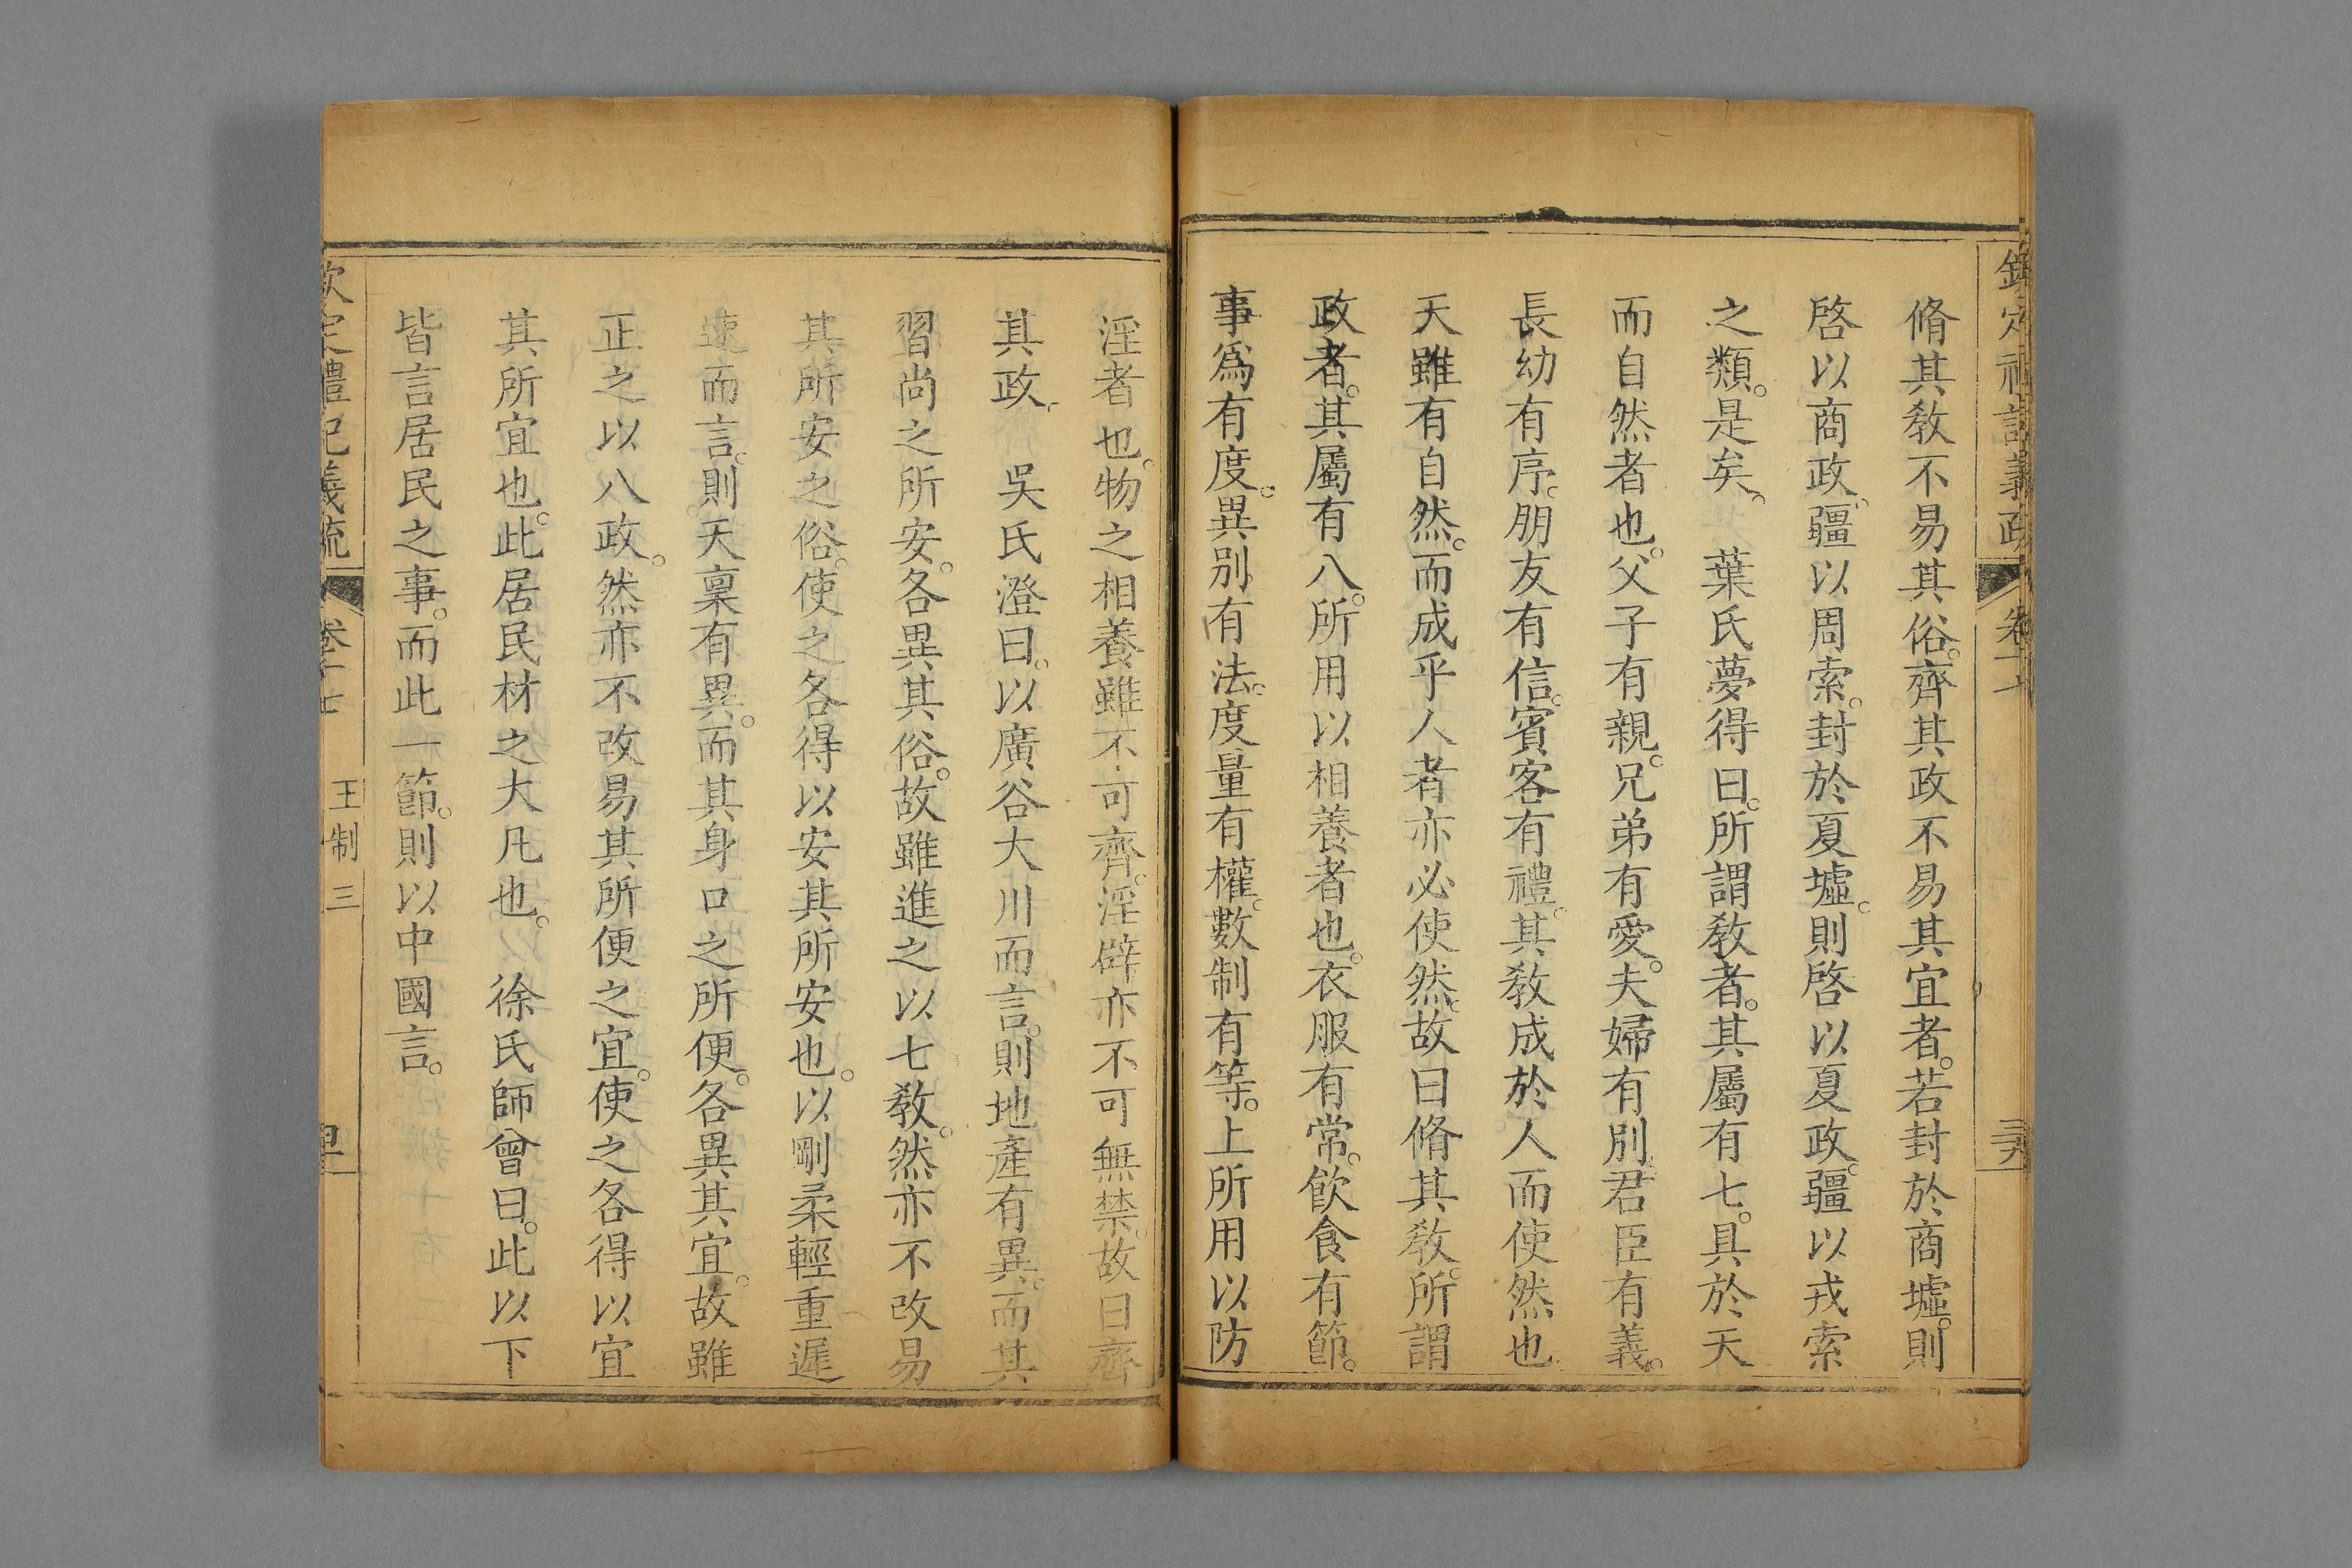 脩其敎不易其俗。齊其政不易其宜者。若封於商墟。則
啓以商政。疆以周索。封於夏墟。則啓以夏政。疆以戎索
之類。是矣。 葉氏夢得曰。所謂敎者。其屬有七。具於天
而自然者也。父子有親。兄弟有愛。夫婦有別君臣有義。
長幼有序。朋友有信。賓客有禮。其敎成於人而使然也
天雖有自然。而成乎人者亦必使然。故曰脩其敎。所謂
政者。其屬有八。所用以相養者也。衣服有常。飮食有節。
事爲有度。異別有法。度量有權。數制有等。上所用以防
淫者也。物之相養雖不可齊。淫辟亦不可無禁。故曰齊
其政。 吳氏澄曰。以廣谷大川而言。則地產有異。而其
習尚之所安。各異其俗。故雖進之以七敎。然亦不改易
其所安之俗。使之各得以安其所安也。以剛柔輕重遲
速而言。則天稟有異。而其身口之所便。各異其宜。故雖
正之以八政。然亦不改易其所便之宜。使之各得以宜
其所宜也。此居民材之大凡也。 徐氏師曾曰。此以下
皆言居民之事。而此一節。則以中國言。
欽定禮記義疏 卷十七 王制三